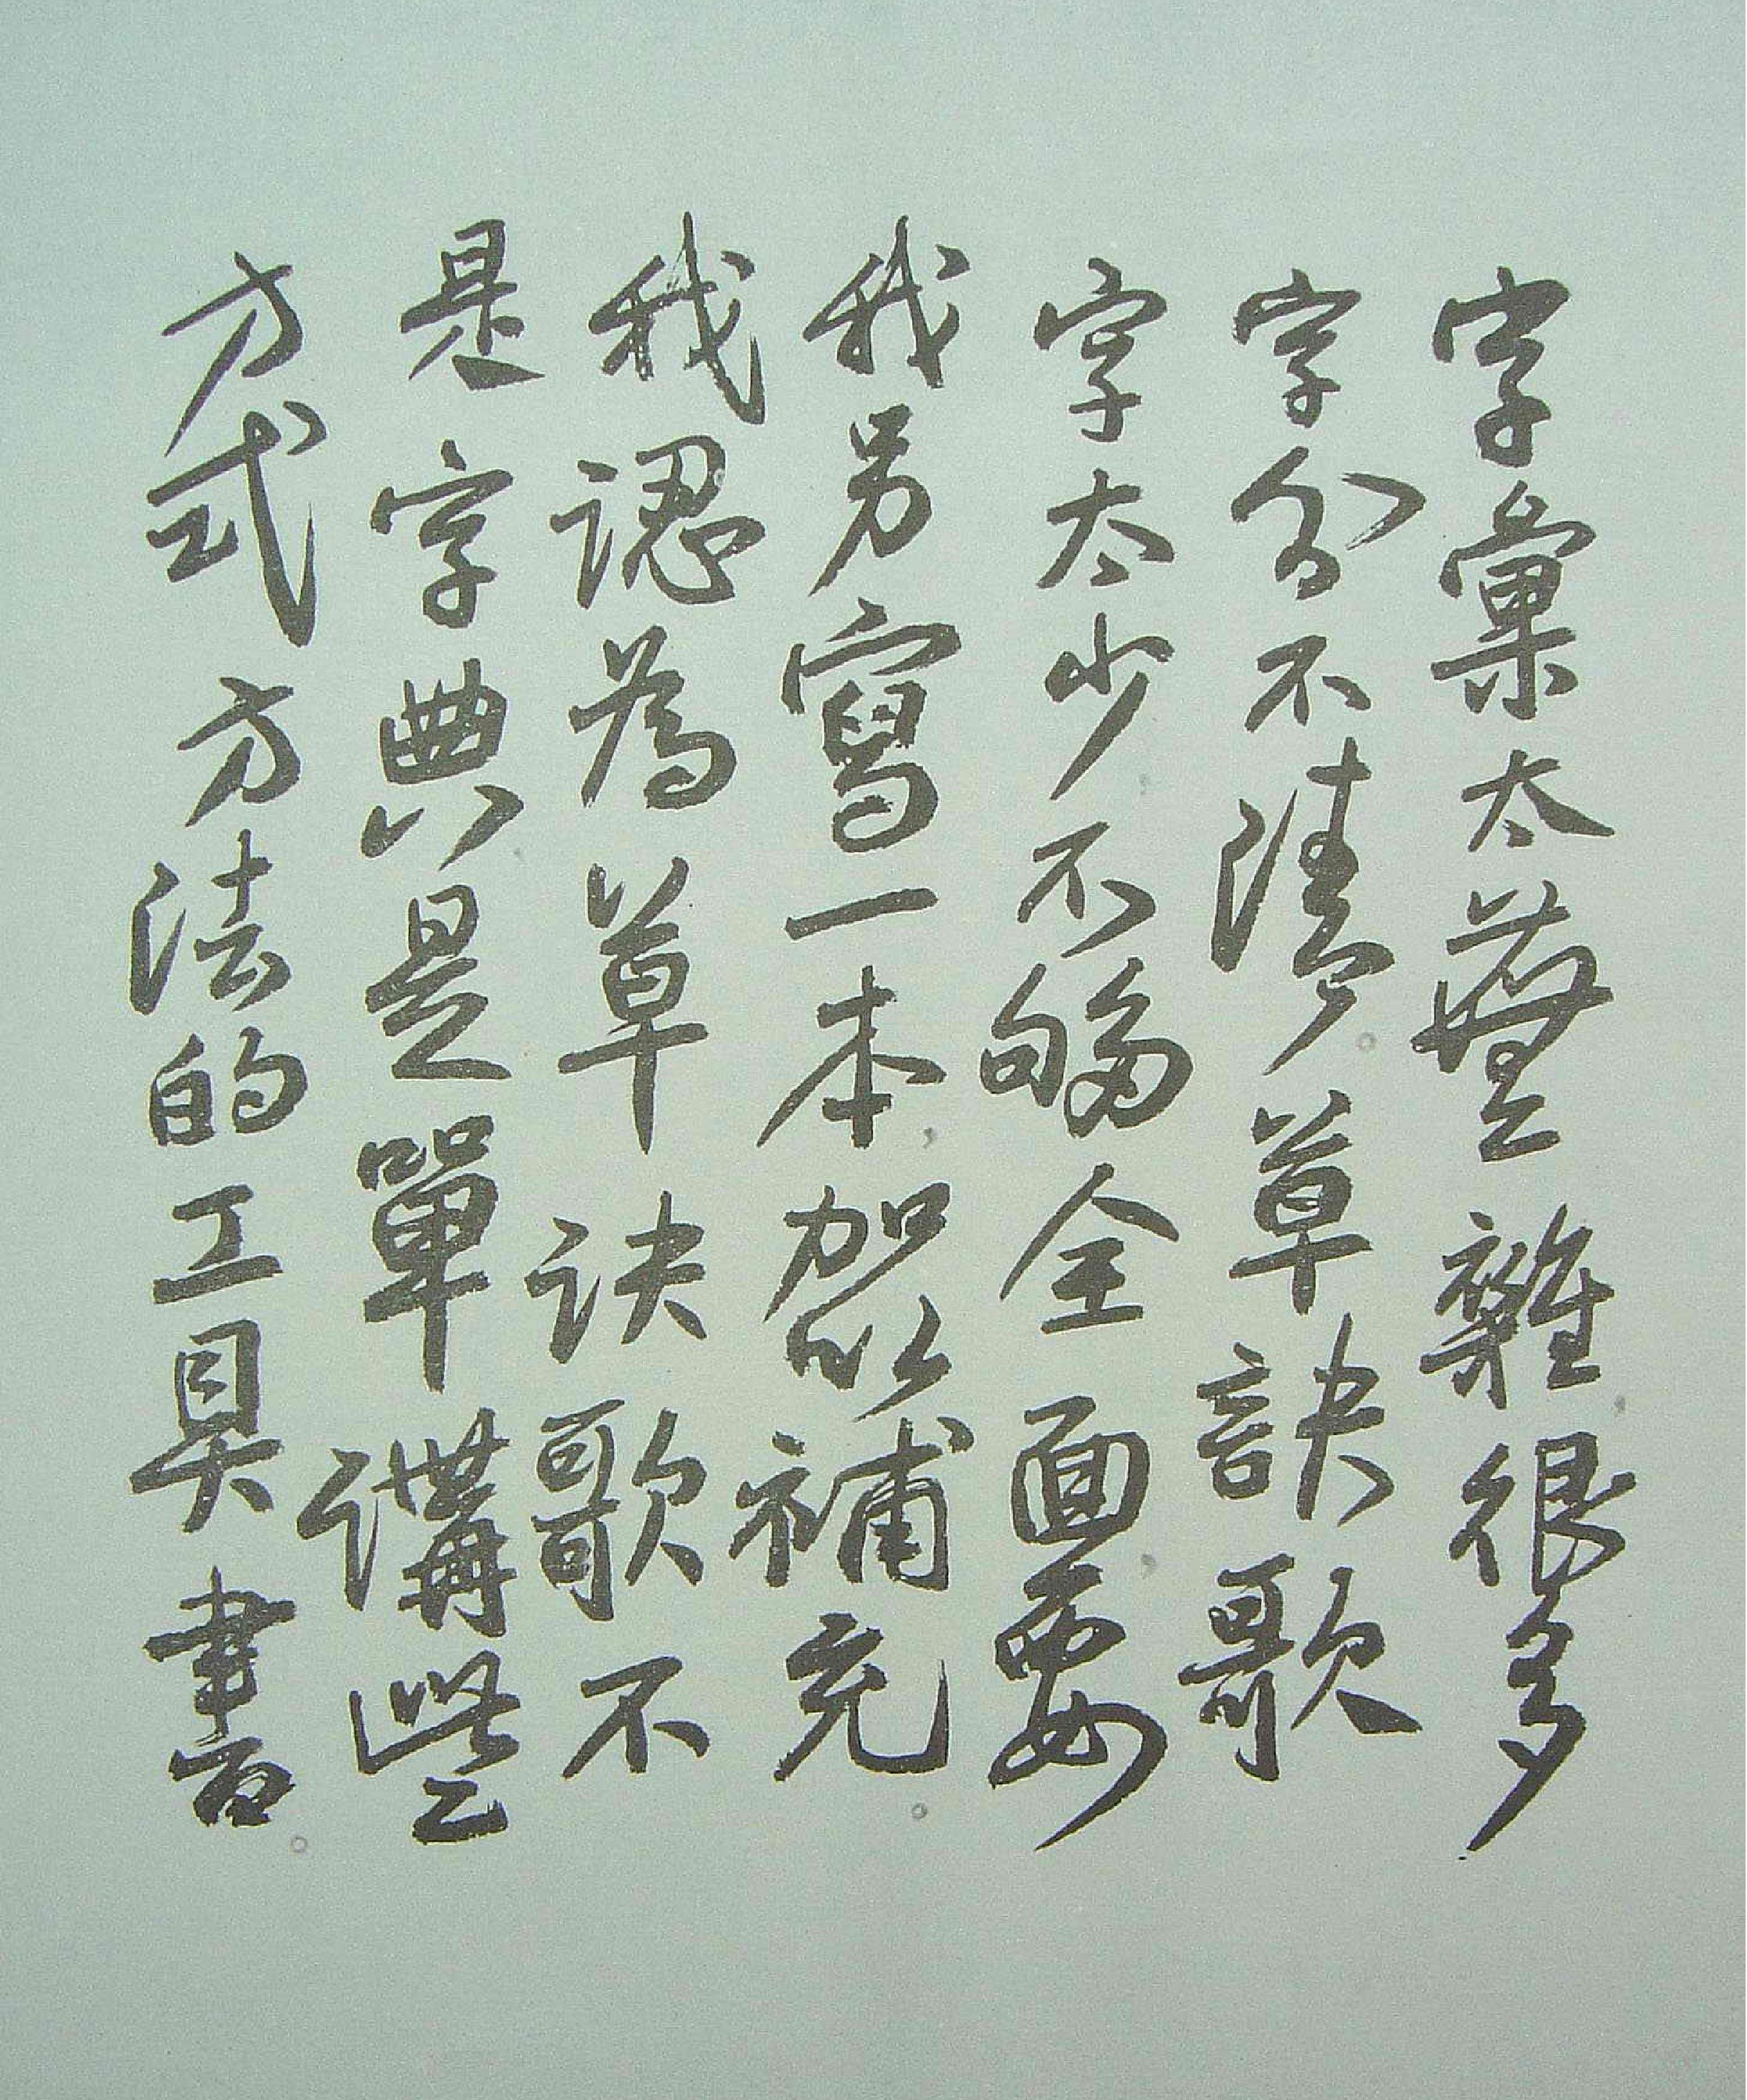 字彙太蕪雜很多
字分不清草訣歌
字太少不够全面要
我另寫一本加以補充
我認為草訣歌不
是字典是單講些
方式方法的工具書